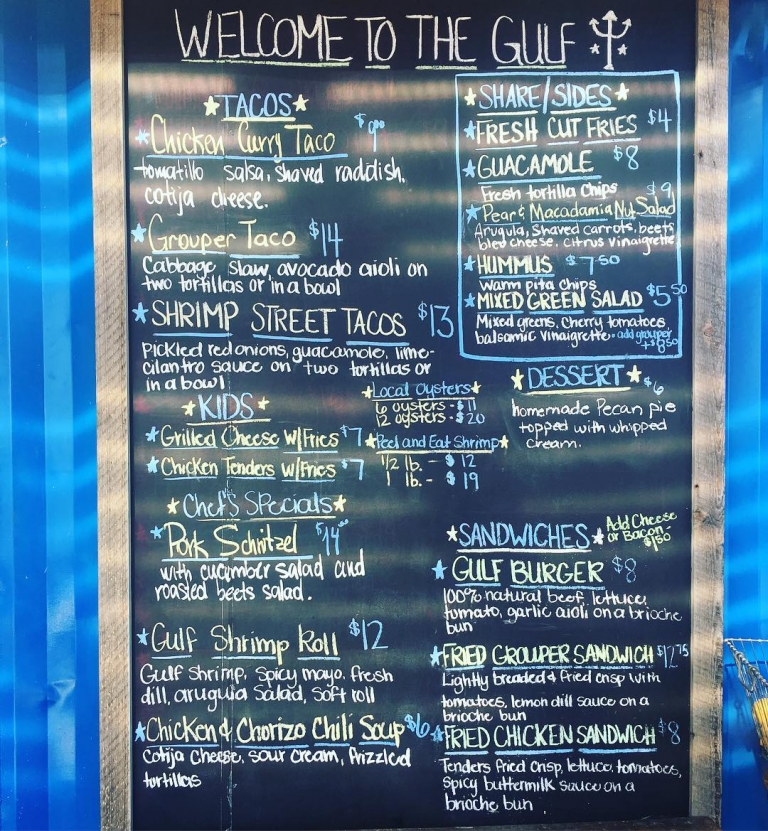 WELCOME TO THE GULF
TACOS
Chicken Curry Taco $9
tomatillo salsa, shaved raddish,
cotija cheese.
Grouper Taco $14
Cabbage slaw, avocado aioli on
two tortillas or in a bowl
SHRIMP STREET TACOS $13
Pickled red onions, guacamole, lime-
cilantro sauce on two tortillas or
in a bowl
KIDS
Grilled Cheese w/Fries $7
Chicken Tenders w/Fries $7
Local Oysters
6 oysters - $11
12 oysters - $20
Peel and Eat Shrimp
1/2 lb. - $12
1 lb. - $19
Chef's Specials
Pork Schnitzel $14
with cucumber salad and
roasted beets salad.
Gulf Shrimp Roll $12
Gulf shrimp, spicy mayo, fresh
dill, arugula salad, soft roll
Chicken & Chorizo Chili Soup $6
Cotija cheese, sour cream, frizzled
tortillas
SHARE/SIDES
FRESH CUT FRIES $4
GUACAMOLE $8
Fresh tortilla chips
Pear & Macadamia Nut Salad $9
Arugula, shaved carrots, beets
bleu cheese, citrus vinaigrette
HUMMUS $7.50
Warm pita chips
MIXED GREEN SALAD $5.50
Mixed greens, cherry tomatoes,
balsamic vinaigrette - add grouper
+$8.50
DESSERT $6
homemade Pecan pie
topped with whipped
cream.
SANDWICHES
Add Cheese
or Bacon -
$1.50
GULF BURGER $8
100% natural beef, lettuce,
tomato, garlic aioli on a brioche
bun
FRIED GROUPER SANDWICH $12.75
Lightly breaded & fried crisp with
tomatoes, lemon dill sauce on a
brioche bun
FRIED CHICKEN SANDWICH $8
Tenders fried crisp, lettuce, tomatoes,
spicy buttermilk sauce on a
brioche bun